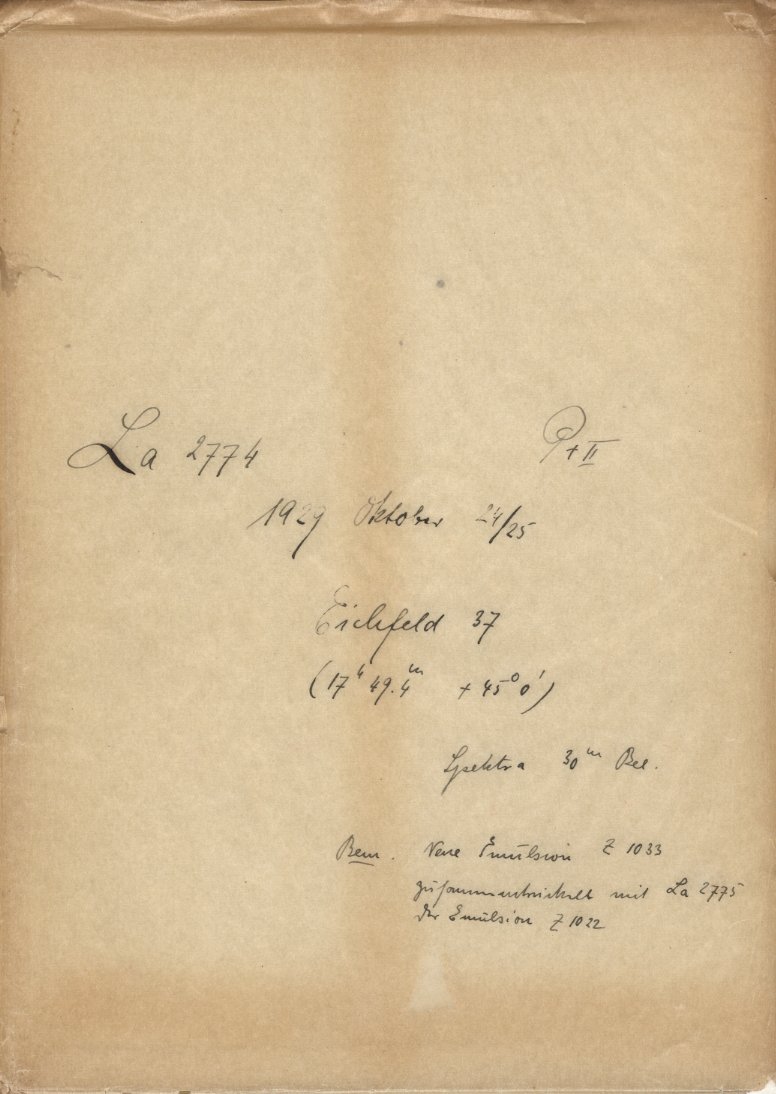 La 2774 P + II
1929 Oktober 24/25
Eichfeld 37
(17ʰ 49.4ᵐ + 45° 0')
Spektra 30ᵐ Bel.
Bem. Neue Emulsion Z 1033
zusammentwickelt mit La 2775
der Emulsion Z 1022